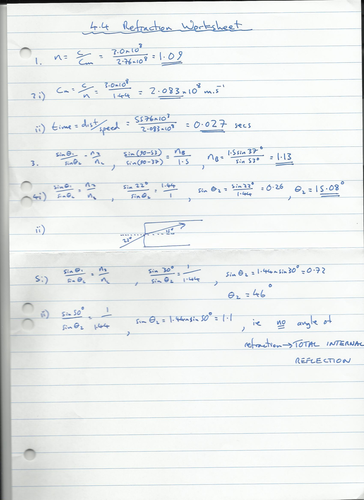 4.4 Refraction Worksheet
1. n = c/Cm = 3.0x10⁸/2.76x10⁸ = 1.09
2i) Cm = c/n = 3.0x10⁸/1.44 = 2.083x10⁸ m.s⁻¹
ii) time = dist/speed = 5576x10³/2.083x10⁸ = 0.027 secs
3. sinθ₁/sinθ₂ = n₂/n₁ , sin(90-53)/sin(90-37) = nB/1.5 , nB = 1.5sin37°/sin53° = 1.13
4i) sinθ₁/sinθ₂ = n₂/n₁ , sin22°/sinθ₂ = 1.44/1 , sinθ₂ = sin22°/1.44 = 0.26 , θ₂ = 15.08°
ii) 22°
5i) sinθ₁/sinθ₂ = n₂/n₁ , sin30°/sinθ₂ = 1/1.44 , sinθ₂ = 1.44xsin30° = 0.72
θ₂ = 46°
sin50°/sinθ₂ = 1/1.44 , sinθ₂ = 1.44xsin50° = 1.1 , ie no angle of
refraction → TOTAL INTERNAL
REFLECTION